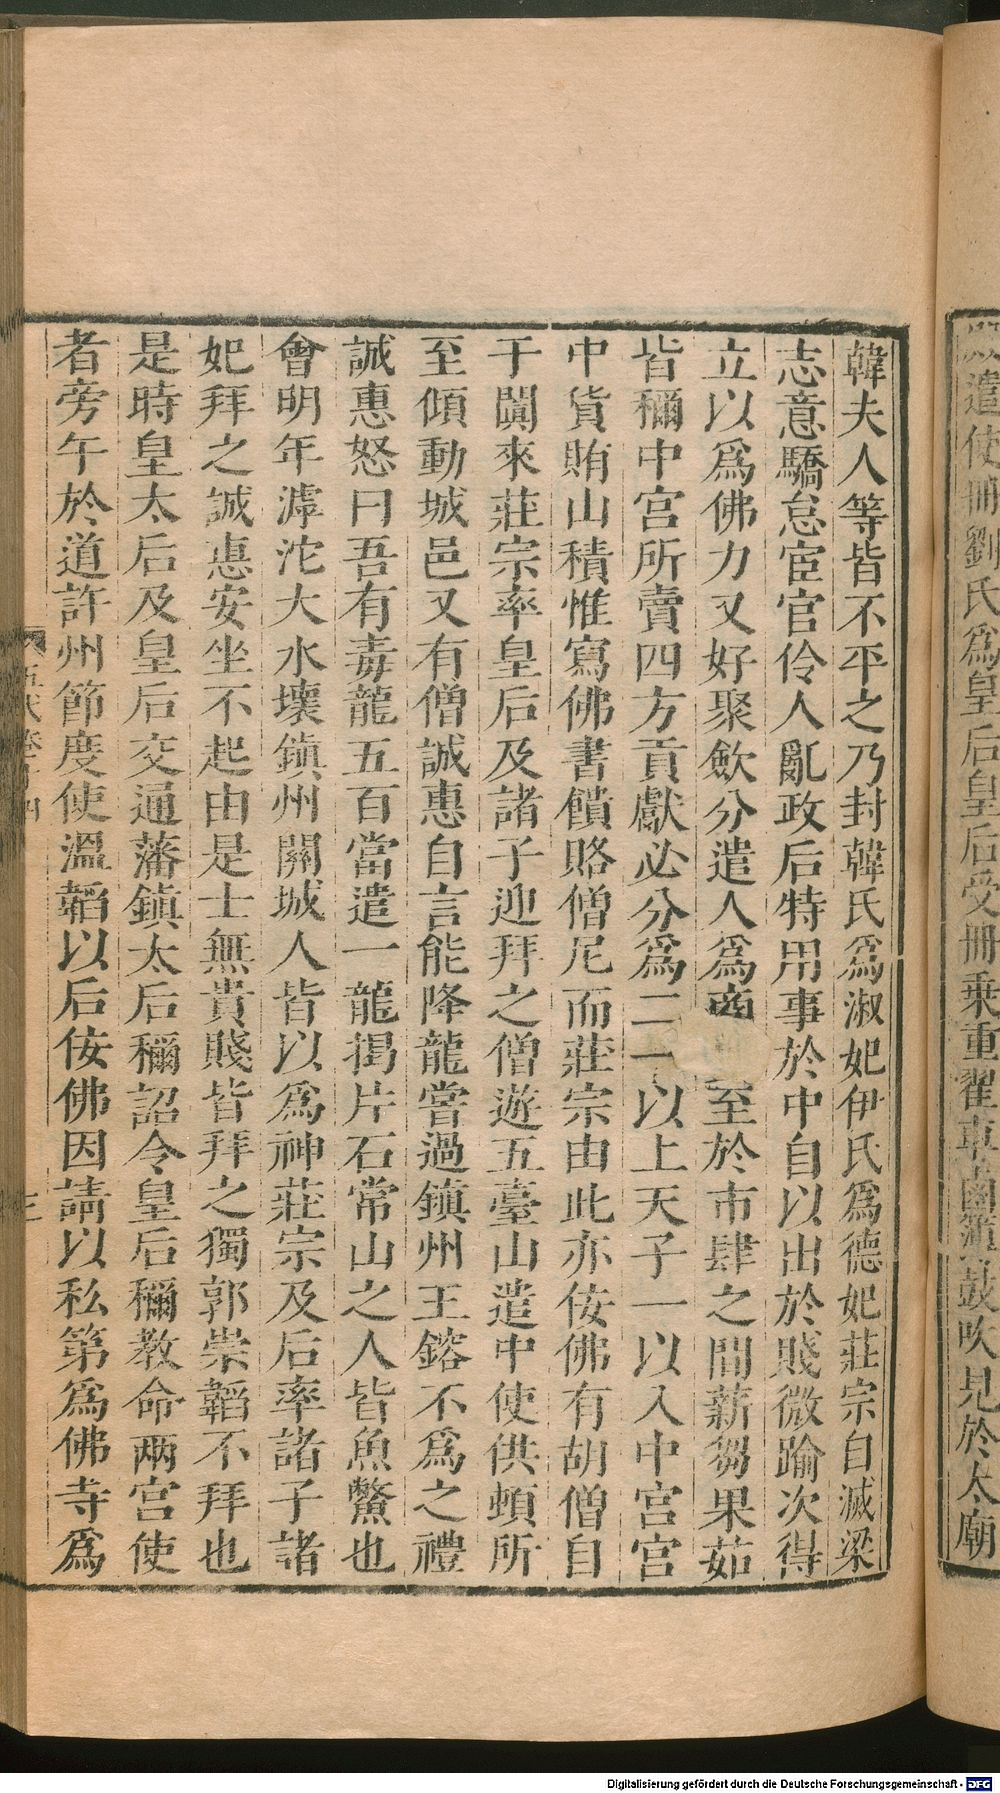 遣使冊劉氏爲皇后皇后受冊乗重翟車鹵簿鼓吹見於太廟
韓夫人等皆不平之乃封韓氏爲淑妃伊氏爲德妃莊宗自滅梁
志意驕怠宦官伶人亂政后特用事於中自以出於賤微踰次得
立以爲佛力又好聚歛分遣人爲商至於市肆之間薪芻果茹
皆稱中宮所賣四方貢獻必分爲二一以上天子一以入中宮宮
中貨賄山積惟寫佛書饋賂僧尼而莊宗由此亦佞佛有胡僧自
于闐來莊宗率皇后及諸子迎拜之僧遊五臺山遣中使供頓所
至傾動城邑又有僧誠惠自言能降龍嘗過鎮州王鎔不爲之禮
誠惠怒曰吾有毒龍五百當遣一龍揭片石常山之人皆魚鱉也
會明年滹沱大水壞鎮州關城人皆以爲神莊宗及后率諸子諸
妃拜之誠惠安坐不起由是士無貴賤皆拜之獨郭崇韜不拜也
是時皇太后及皇后交通藩鎮太后稱誥令皇后稱教命兩宮使
者旁午於道許州節度使溫韜以后佞佛因請以私第爲佛寺爲
五代
Digitalisierung gefördert durch die Deutsche Forschungsgemeinschaft - DFG